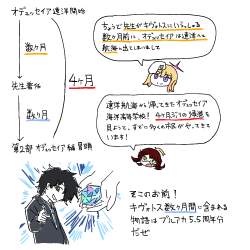 オデュッセイア遠洋開始
数ヶ月
先生着任
数ヶ月
4ヶ月
第2部 オデュッセイア編冒頭
ちょうど先生がキヴォトスにいらっしゃる
数ヶ月前に、オデュッセイアは遠洋への
航海に出ていまして
遠洋航海から帰ってきたオデュッセイア
海洋高等学校! 4ヶ月ぶりの帰港を
見ようと、すでに多くの市民がやってきて
います!
そこのお前!
キヴォトス数ヶ月間に含まれる
物語はブルアカ5.5周年分
だぜ